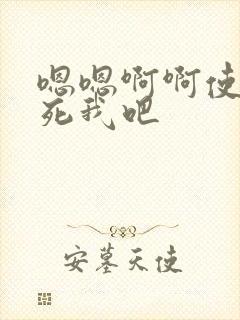 嗯嗯啊啊使
死我吧
安墓天使